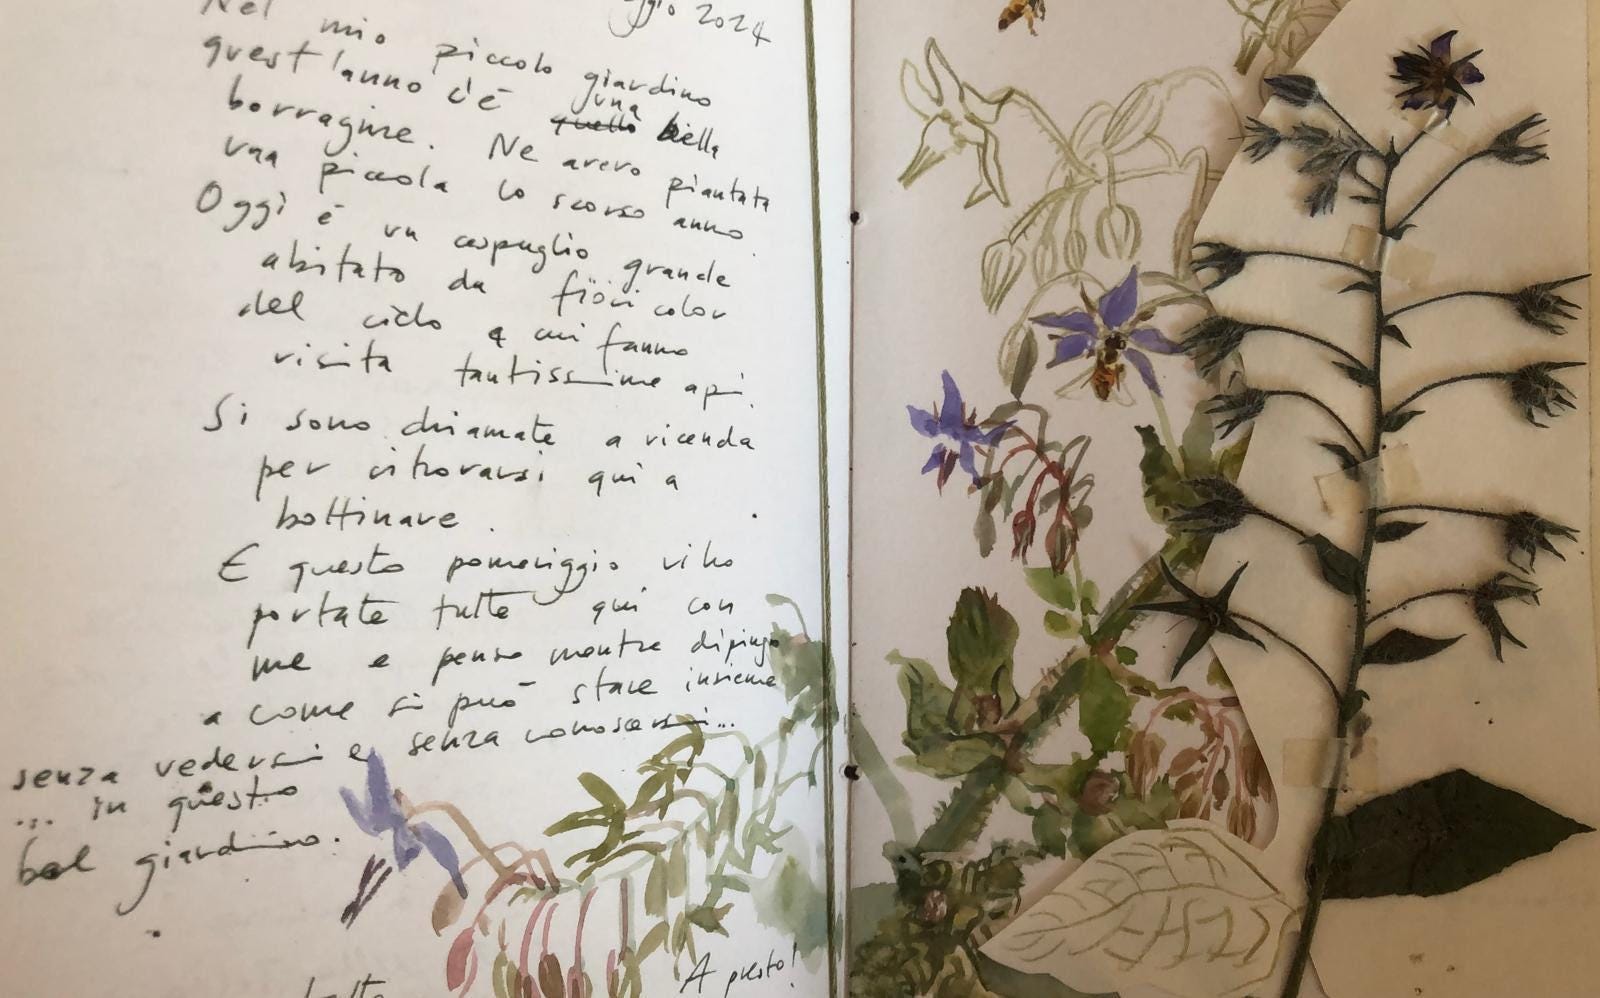 Nel mio piccolo giardino
ggio 2024
quest'anno c'è una
quella bella
borragine. Ne avevo piantata
una piccola lo scorso anno.
Oggi è un cespuglio grande
abitato da fiori color
del cielo a cui fanno
visita tantissime api.
Si sono chiamate a vicenda
per ritrovarsi qui a
bottinare.
E questo pomeriggio vi ho
portate tutte qui con
me e penso mentre dipingo
a come si può stare insieme
senza vedersi e senza conoscersi...
... in questo
bel giardino.
A presto!